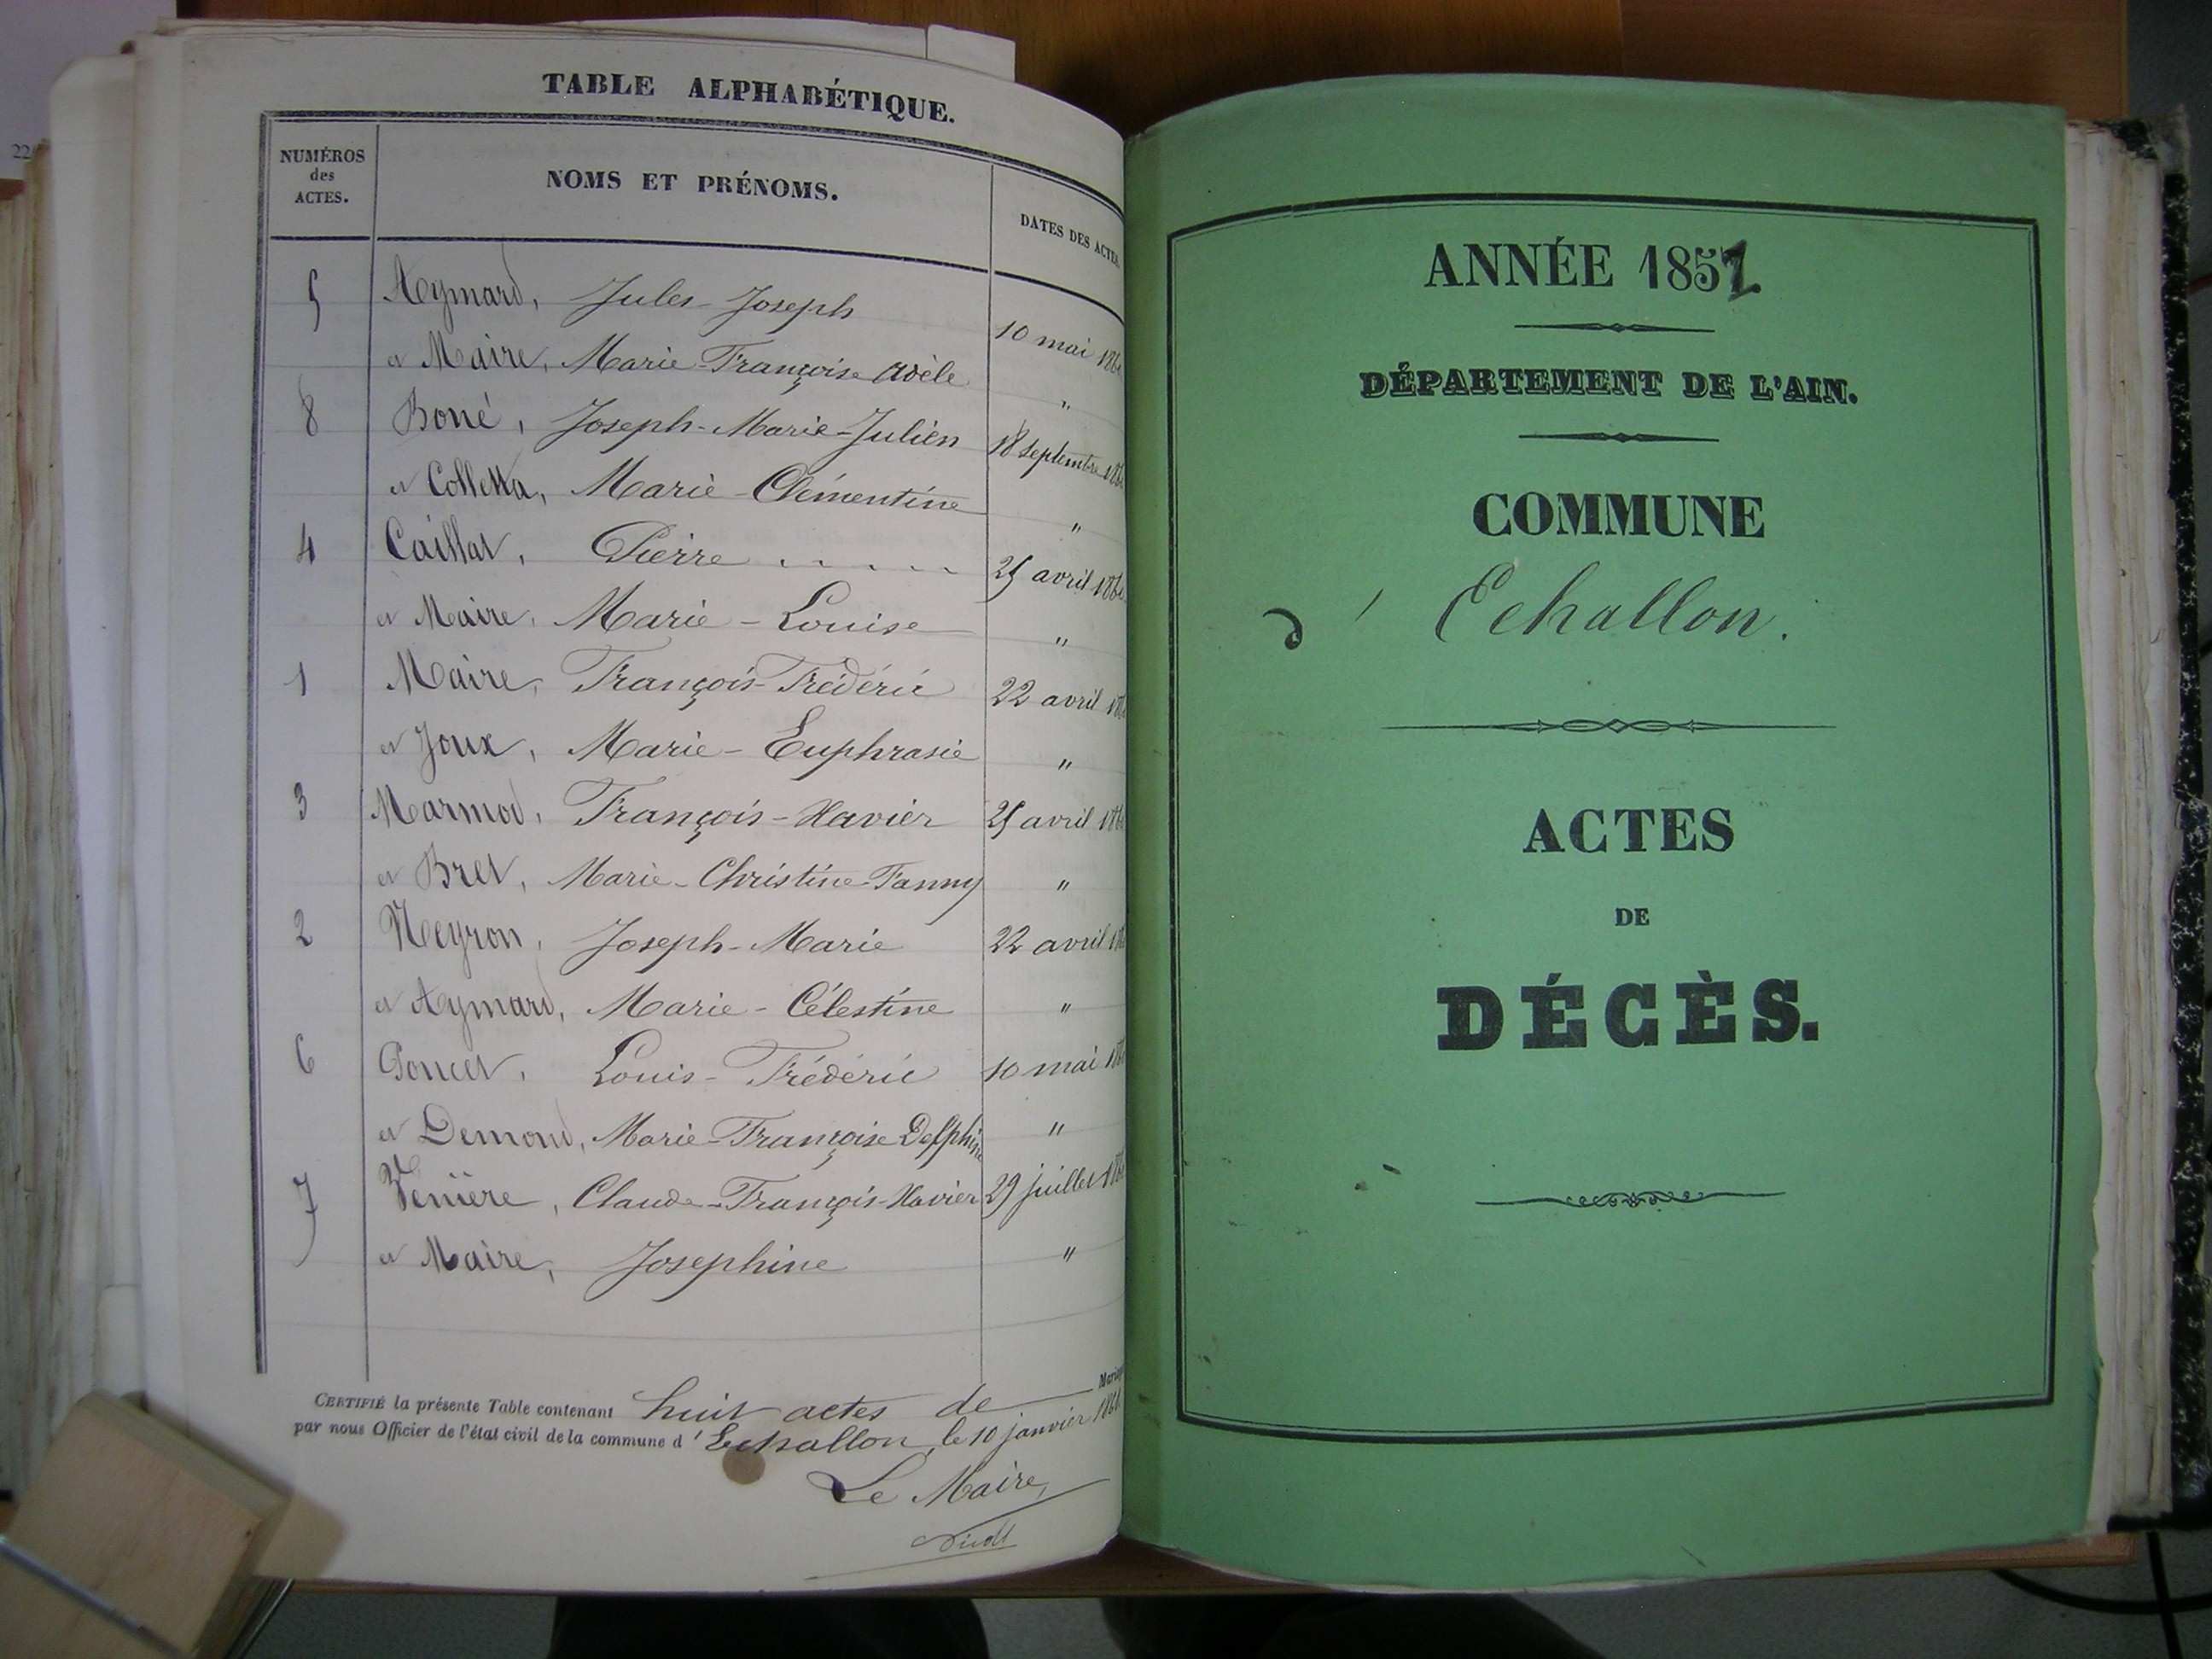 22
TABLE ALPHABÉTIQUE.
NUMÉROS
des
ACTES.
NOMS ET PRÉNOMS.
DATES DES ACTES.
5 Aymard, Jules-Joseph 10 mai
et Maire, Marie-Françoise Adèle "
8 Boné, Joseph-Marie-Julien 18 septembre
et Colletta, Marie-Clémentine "
4 Caillat, Pierre 25 avril
et Maire, Marie-Louise "
1 Maire, François-Frédéric 22 avril
et Joux, Marie-Euphrasie "
3 Marmod, François-Xavier 25 avril
et Bret, Marie-Christine-Fanny "
2 Neyron, Joseph-Marie 22 avril
et Aymard, Marie-Célestine "
6 Poncet, Louis-Frédéric 10 mai
et Demond, Marie-Françoise Delphine "
7 Claude-François-Xavier 29 juillet
et Maire, Josephine "
CERTIFIÉ la présente Table contenant huit actes de
par nous Officier de l'état civil de la commune d'Echallon, le 10 janvier
Le Maire,
ANNÉE 185
DÉPARTEMENT DE L'AIN.
COMMUNE
d' Echallon.
ACTES
DE
DÉCÈS.